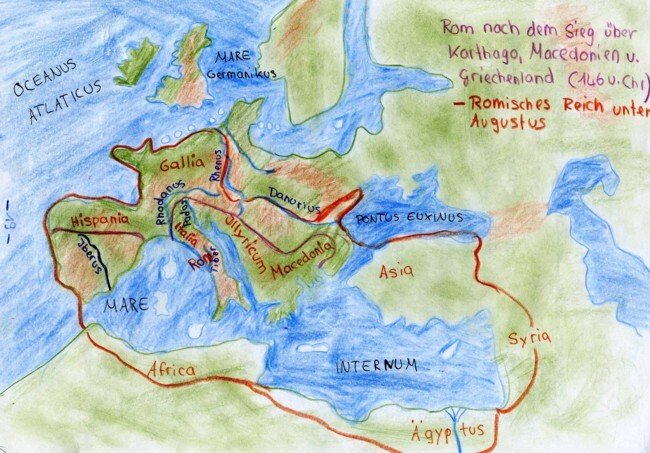 Rom nach dem Sieg über
Karthago, Macedonien u.
Griechenland (146 v. Chr)
– Römisches Reich unter
Augustus
OCEANUS
ATLATICUS
MARE
Germanikus
Gallia
Rhenus
Rhodanus
Padus
Danuvius
PONTUS EUXINUS
Hispania
Iberus
Italia
Rom
Tiber
Illyricum
Macedonia
Asia
MARE
INTERNUM
Syria
Africa
Ägyptus